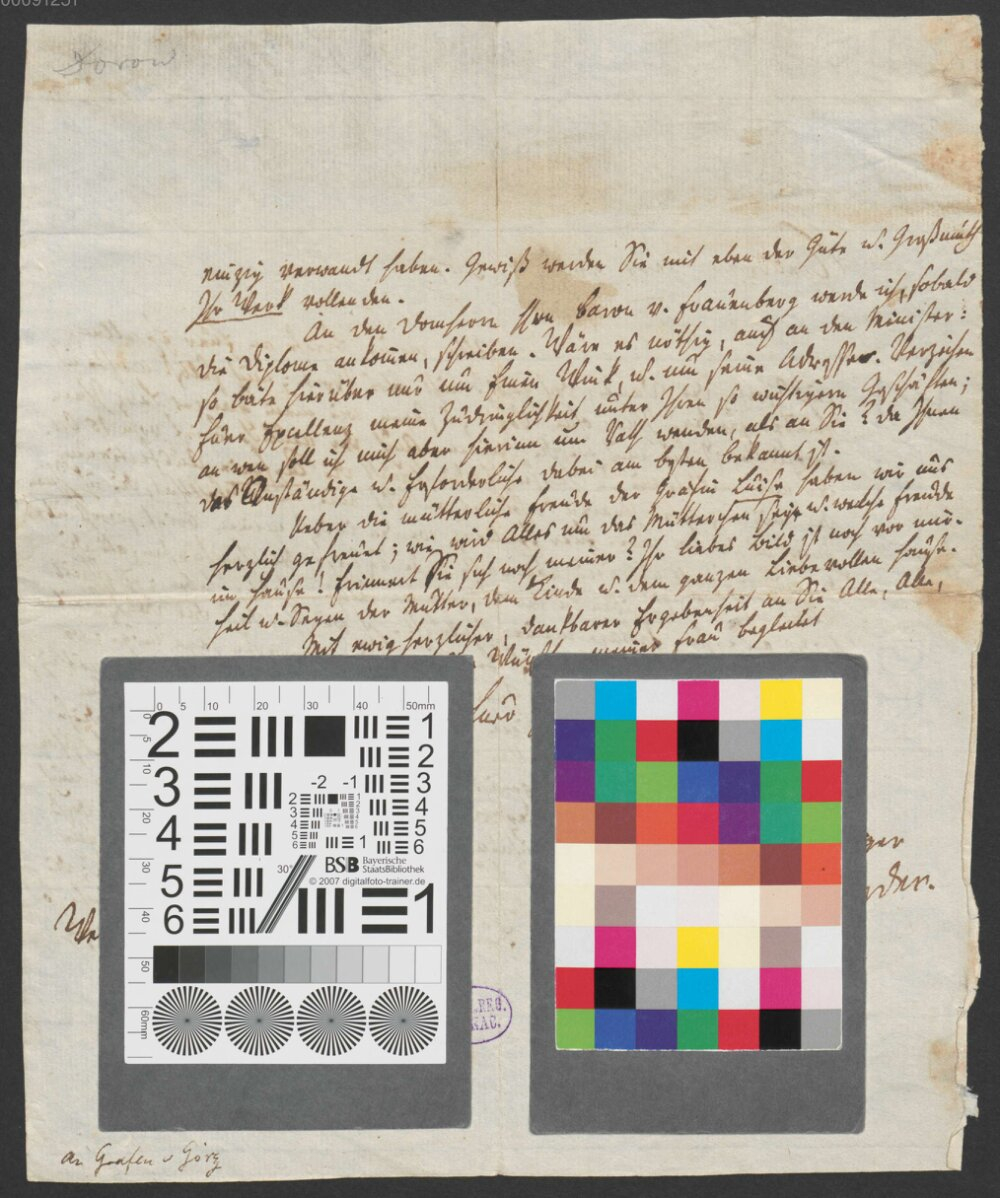 00091251
einzig verwandt haben. Gewiß werden Sie mit eben der Güte u. Großmuth
Ihr Werk vollenden.
An den Domherrn Hrn Baron v. Frauenberg werde ich, sobald
die Diplome ankommen, schreiben. Wäre es nöthig, auch an den Minister:
so bäte hierüber nur um Einen Wink, u. um seine Adresse. Verzeihen
Euer Excellenz meine Zudringlichkeit unter Ihren so wichtigern Geschäften;
an wen soll ich mich aber hierinn um Rath wenden, als an Sie? da Ihnen
das Anständige u. Erforderliche dabei am besten bekannt ist.
Ueber die mütterliche Freude der Gräfin Luise haben wir uns
herzlich gefreuet; wie wird Alles um das Mütterchen seyn u. welche Freude
im Hause! Erinnert Sie sich noch meiner? Ihr liebes Bild ist noch vor mir.
Heil u. Segen der Mutter, dem Kinde u. dem ganzen Liebevollen Hause.
Mit ewig herzlicher, dankbarer Ergebenheit an Sie Alle, Alle,
meiner Frau begleitet
Euro
ger
We
rder.
REG.
AC.
an Grafen v Görz
0 5 10 20 30 40 50mm
0 5 10 20 30 40 50 60mm
2 1
2
3 -2 -1 3
4 4
5
6
5 30°
6 1
BSB Bayerische
StaatsBibliothek
© 2007 digitalfoto-trainer.de